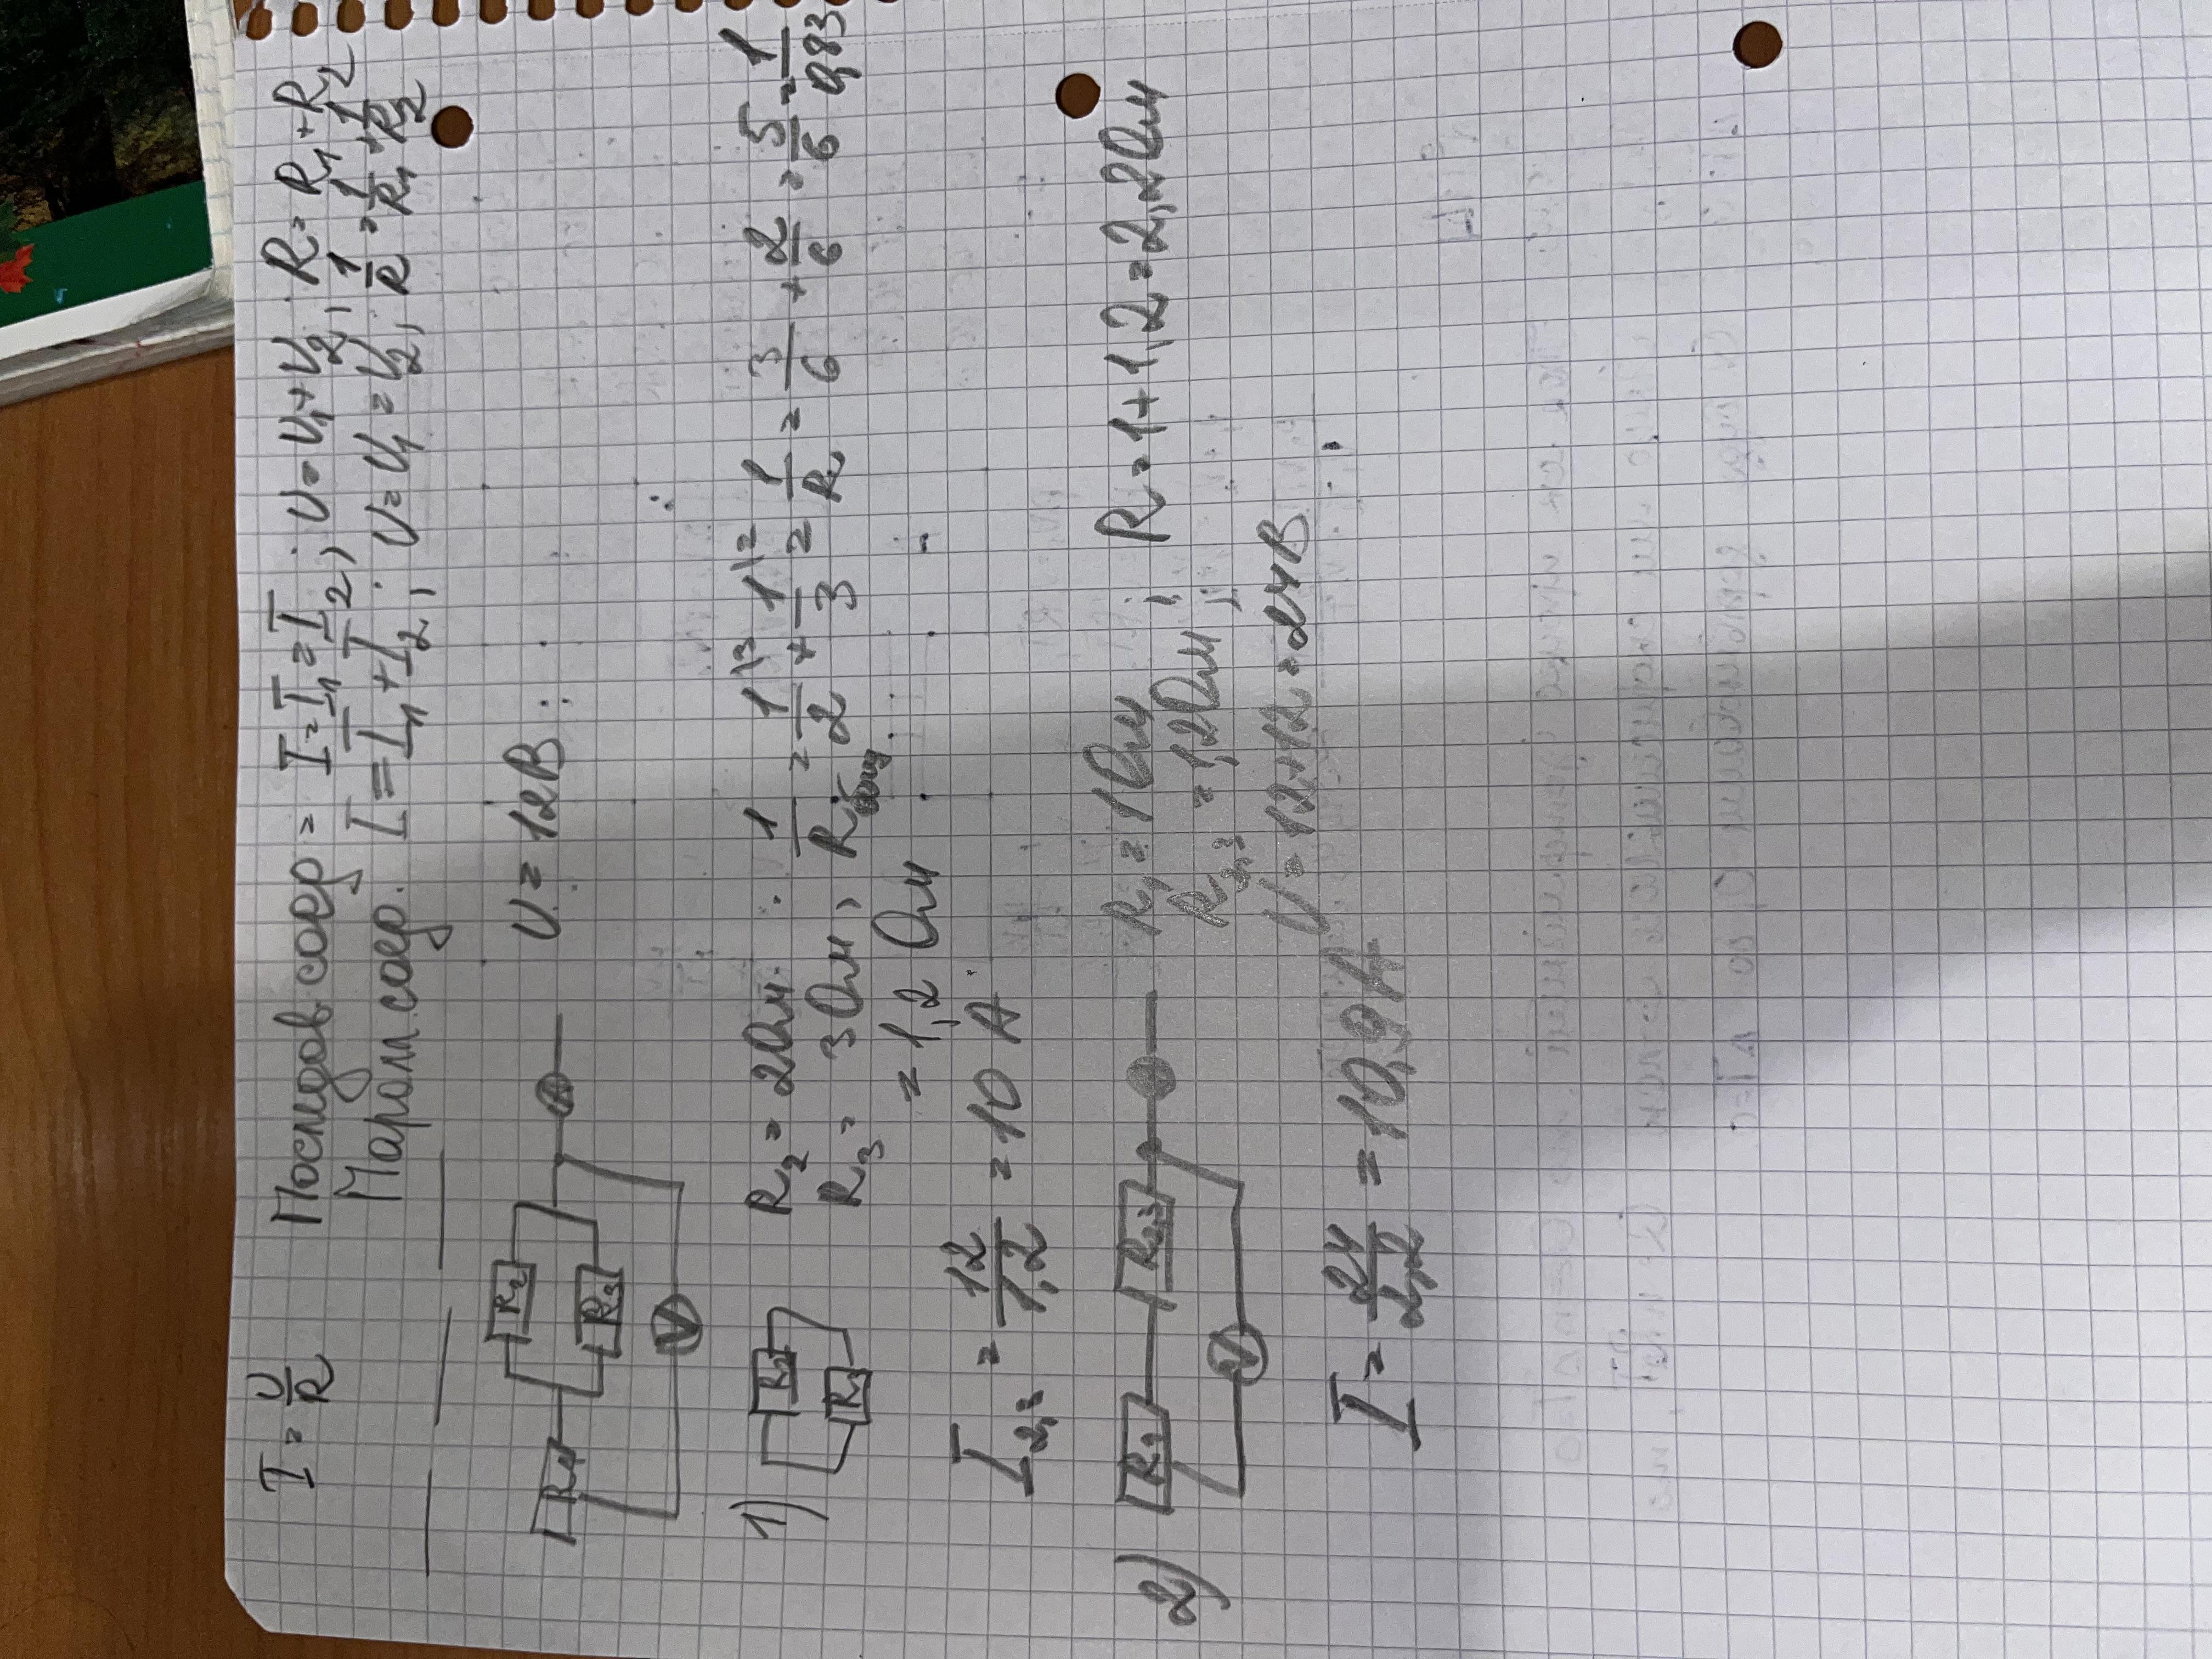 I = U/R Последов соер = I = I₁ = I₂; U = U₁ + U₂; R = R₁ + R₂
Паралл. соер. I = I₁ + I₂; U = U₁ = U₂; 1/R = 1/R₁ + 1/R₂
R₁ R₂ R₃ V A U = 12В
1) R₂ R₃ R₂ = 2Ом R₃ = 3Ом, 1/Rобщ = 1\3/2 + 1\2/3 = 1/R = 3/6 + 2/6 = 5/6 = 1/0,83
= 1,2 Ом
I₂,₃ = 12/1,2 = 10 А
2) R₁ R₂,₃ V R₁ = 1Ом; R = 1 + 1,2 = 2,2Ом
R₂,₃ = 1,2Ом;
U = 12 + 12 = 24В
I = 24/2,2 = 10,9А